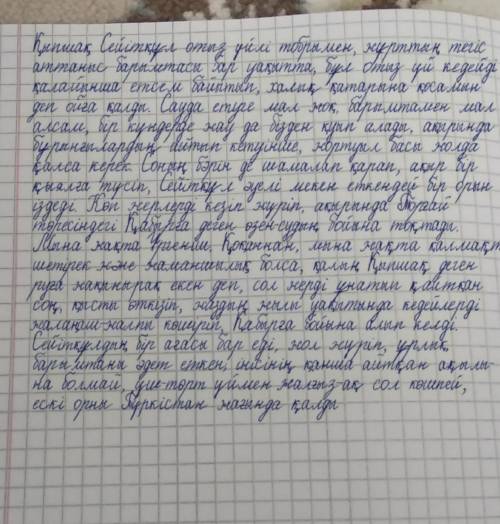 Қыпшақ Сейітқұл отыз үйлі тобырымен, жұрттың тегіс
аттаныс барымтасы бар уақытта, бұл отыз үй кедейді
қалайынша етсем байытып, халық қатарына қосамын
деп ойға қалды. Сауда етуге мал жоқ, барымтамен мал
алсам, бір күндерде жау да бізден қуып алады, ақырында
бұрынғылардың айтып кетуінше, жортуыл басы жолда
қалса керек. Соның бәрін де шамалап қарап, ақыр бір
қиялға түсіп, Сейітқұл әуелі мекен еткендей бір орын
іздеді. Көп жерлерді кезіп жүріп, ақырында Торғай
төресіндегі Қабырға деген өзен-судың бойына тоқтады.
Мына жақта Үргеніш, Қоқаннан, мына жақта қалмақт
шеттрек және жаманшылық болса, қалың Қыпшақ деген
руға жақынырақ екен деп, сол жерді ұнатып қайтқан
соң, қысты өткізіп, жаздың жылы уақытында кедейлерді
жалаңаш-жалпы көшіріп, Қабырға бойына алып келді.
Сейітқұлдың бір ағасы бар еді, жол жүріп, ұрлық,
барымтаны әдет еткен, інісінің қанша айтқан ақылы-
на болмай, үш-төрт үймен жалғыз-ақ сол көшпей,
ескі орны Түркістан жағында қалды